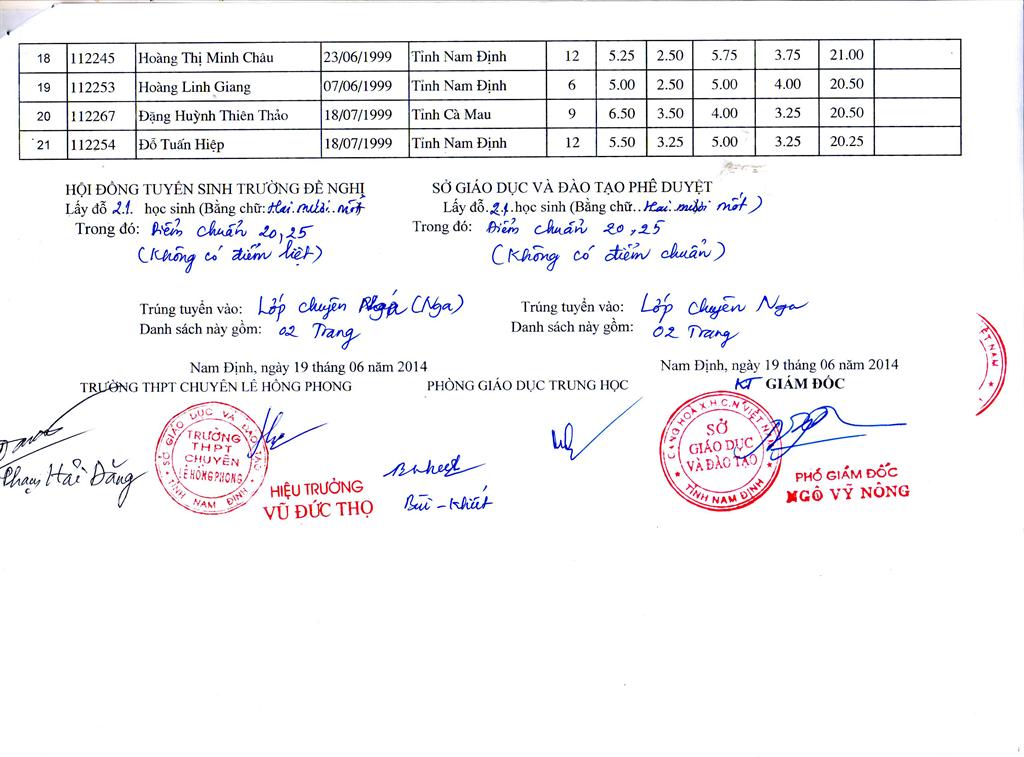 18 112245 Hoàng Thị Minh Châu 23/06/1999 Tỉnh Nam Định 12 5.25 2.50 5.75 3.75 21.00
19 112253 Hoàng Linh Giang 07/06/1999 Tỉnh Nam Định 6 5.00 2.50 5.00 4.00 20.50
20 112267 Đặng Huỳnh Thiên Thảo 18/07/1999 Tỉnh Cà Mau 9 6.50 3.50 4.00 3.25 20.50
21 112254 Đỗ Tuấn Hiệp 18/07/1999 Tỉnh Nam Định 12 5.50 3.25 5.00 3.25 20.25
HỘI ĐỒNG TUYỂN SINH TRƯỜNG ĐỀ NGHỊ
Lấy đỗ 21. học sinh (Bằng chữ: Hai mươi mốt
Trong đó: Điểm chuẩn 20,25
(Không có điểm liệt)
Trúng tuyển vào: Lớp chuyên (Nga)
Danh sách này gồm: 02 Trang
Nam Định, ngày 19 tháng 06 năm 2014
TRƯỜNG THPT CHUYÊN LÊ HỒNG PHONG
SỞ GIÁO DỤC VÀ ĐÀO TẠO PHÊ DUYỆT
Lấy đỗ.21.học sinh (Bằng chữ..Hai mươi mốt)
Trong đó: Điểm chuẩn 20,25
(Không có điểm chuẩn)
Trúng tuyển vào: Lớp chuyên Nga
Danh sách này gồm: 02 Trang
PHÒNG GIÁO DỤC TRUNG HỌC
Nam Định, ngày 19 tháng 06 năm 2014
KT GIÁM ĐỐC
Phạm Hải Đăng
SỞ GIÁO DỤC VÀ ĐÀO TẠO
TRƯỜNG
THPT
CHUYÊN
LÊ HỒNG PHONG
TỈNH NAM ĐỊNH
HIỆU TRƯỞNG
VŨ ĐỨC THỌ
Bùi - Khiết
CỘNG HOÀ X.H.C.N VIỆT NAM
SỞ
GIÁO DỤC
VÀ ĐÀO TẠO
TỈNH NAM ĐỊNH
PHÓ GIÁM ĐỐC
NGÔ VỸ NÔNG
VIỆT NAM